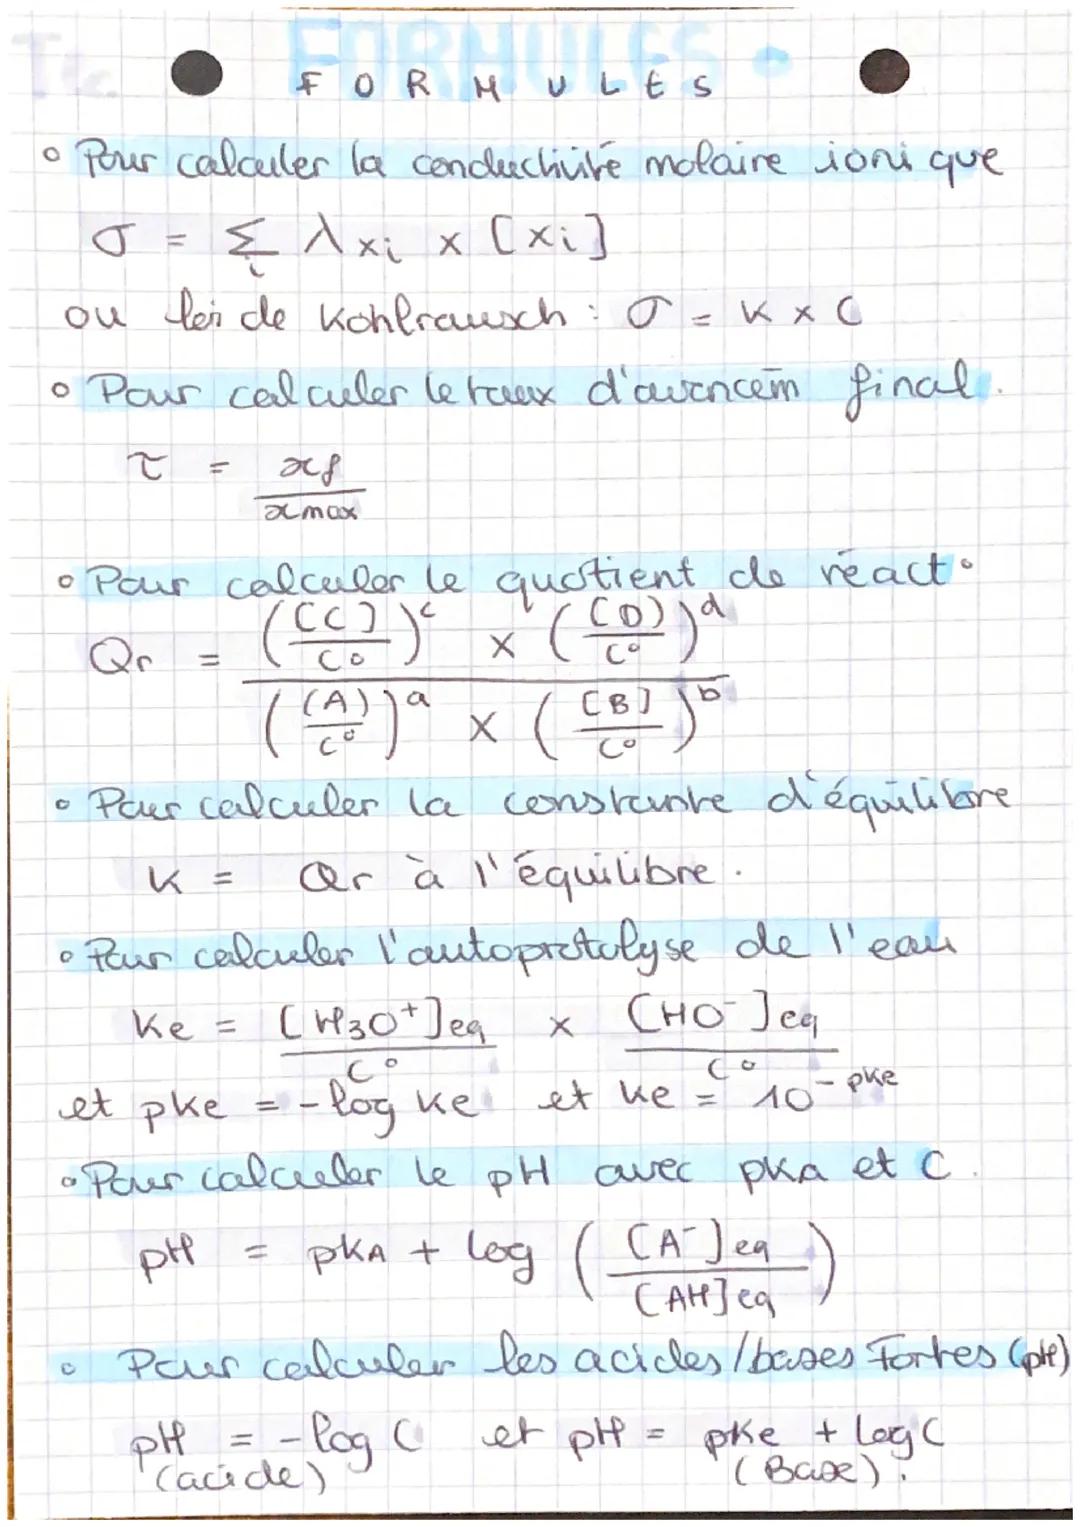 FORMULES
° Pour calculer la conductivité molaire ionique
σ = Σi λxi × [xi]
ou loi de Kohlrausch : σ = K × C
° Pour calculer le taux d'avancem̄ final.
τ = xf / xmax
° Pour calculer le quotient de réact°
Qr = (([C]/C°)^c × ([D)/C°)^d) / (((A)/C°)^a × ([B]/C°)^b)
° Pour calculer la constante d'équilibre
K = Qr à l'équilibre.
° Pour calculer l'autoprotolyse de l'eau
Ke = [H3O+]eq / C° × [HO-]eq / C°
et pKe = -log Ke et Ke = 10^-pKe
° Pour calculer le pH avec pKa et C.
pH = pKA + log ([A-]eq / [AH]eq)
° Pour calculer les acides/bases Fortes (pH)
pH = -log C et pH = pKe + log C
(acide) (Base).